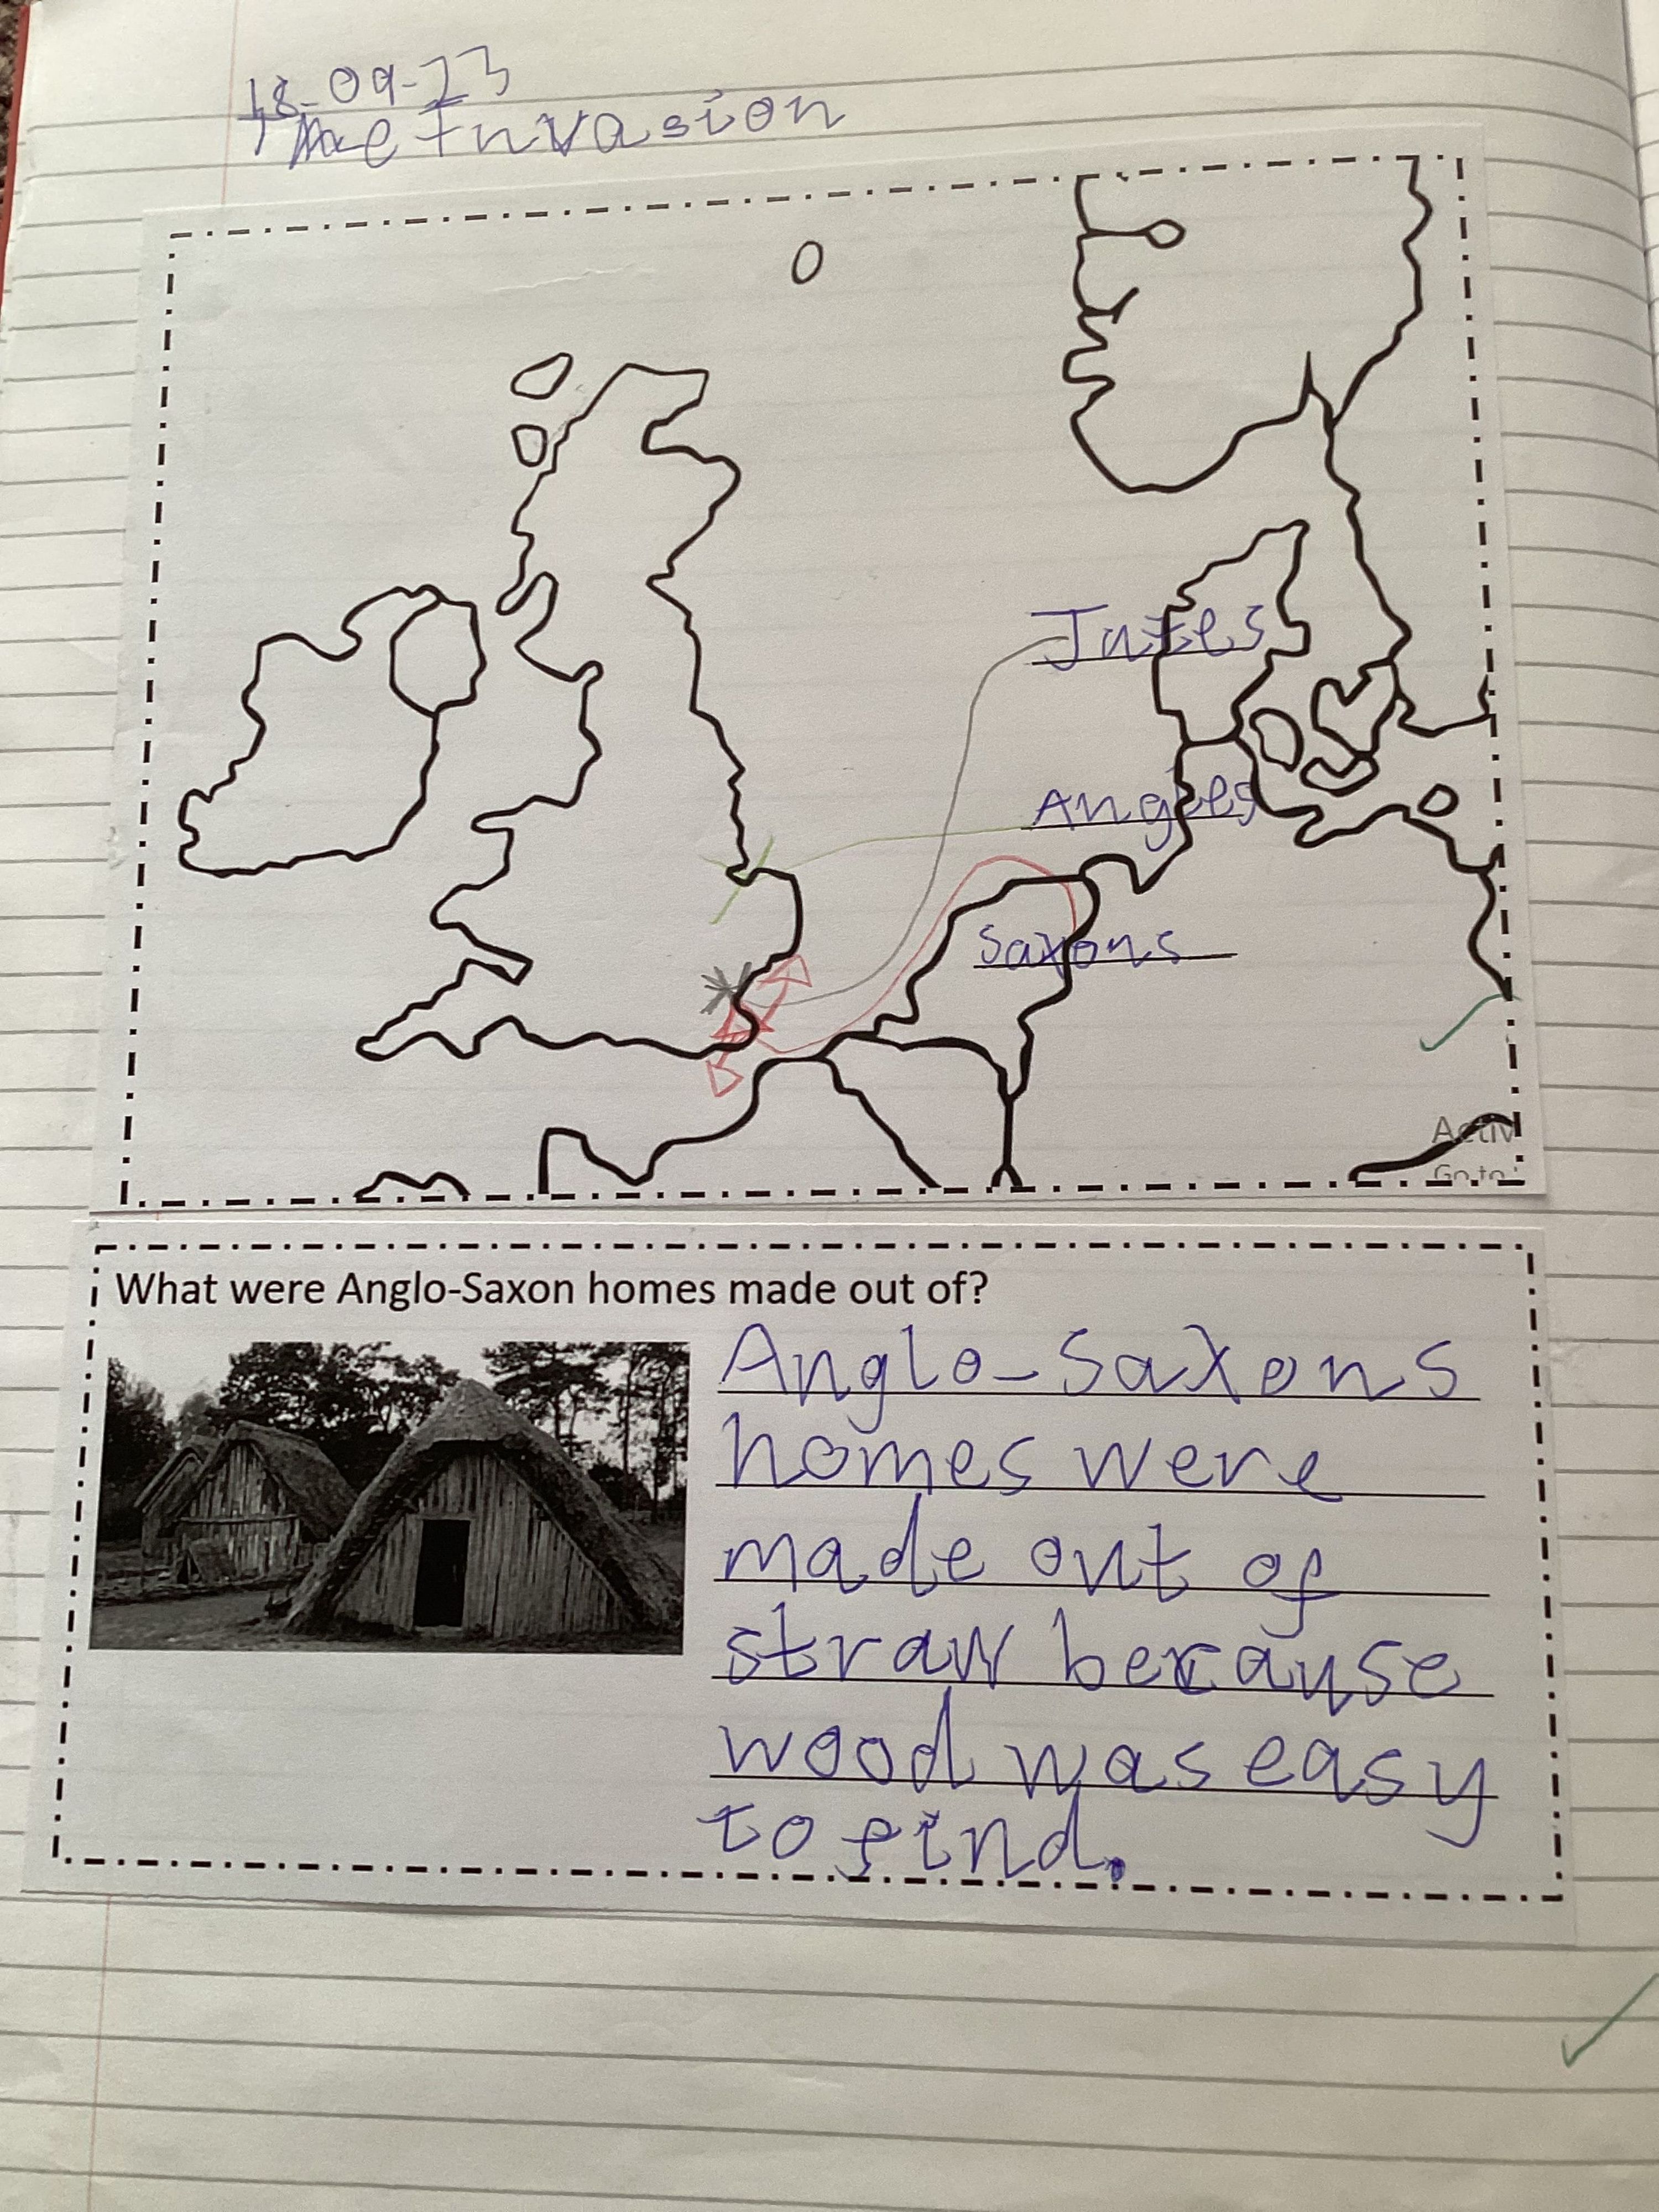 18-09-23
The Invasion
Jutes
Angles
Saxons
Activ
Go to
What were Anglo-Saxon homes made out of?
Anglo-Saxons
homes were
made out of
straw because
wood was easy
to find.